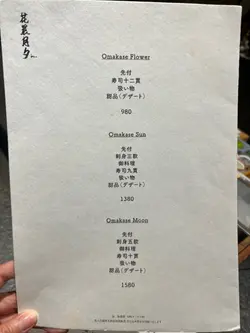 花晨月夕
Omakase Flower
先付
寿司十二貫
吸い物
甜品(デザート)
980
Omakase Sun
先付
刺身三款
御料理
寿司九貫
吸い物
甜品(デザート)
1380
Omakase Moon
先付
刺身五款
御料理
寿司十貫
吸い物
甜品(デザート)
1580